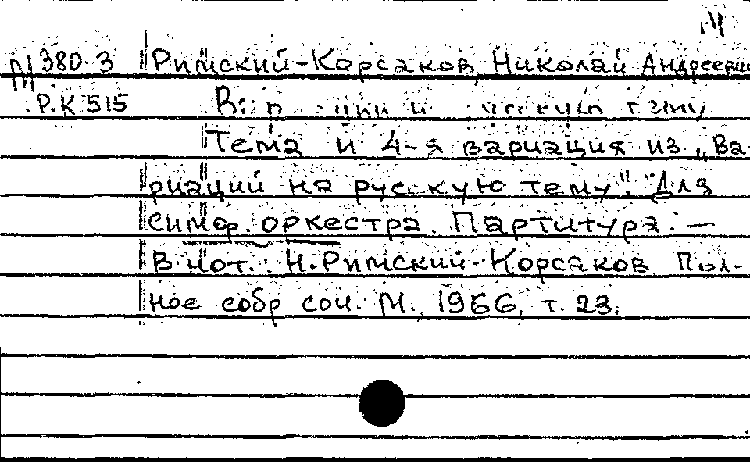 М 380 3 Римский-Корсаков, Николай Андрееви
Р.К 515
тему
Тема и 4-я вариация из „Ва-
риаций на русскую тему". Для
симф. оркестра. Партитура. —
В нот.: Н. Римский-Корсаков Пол-
ное собр соч. М., 1966, т. 23.